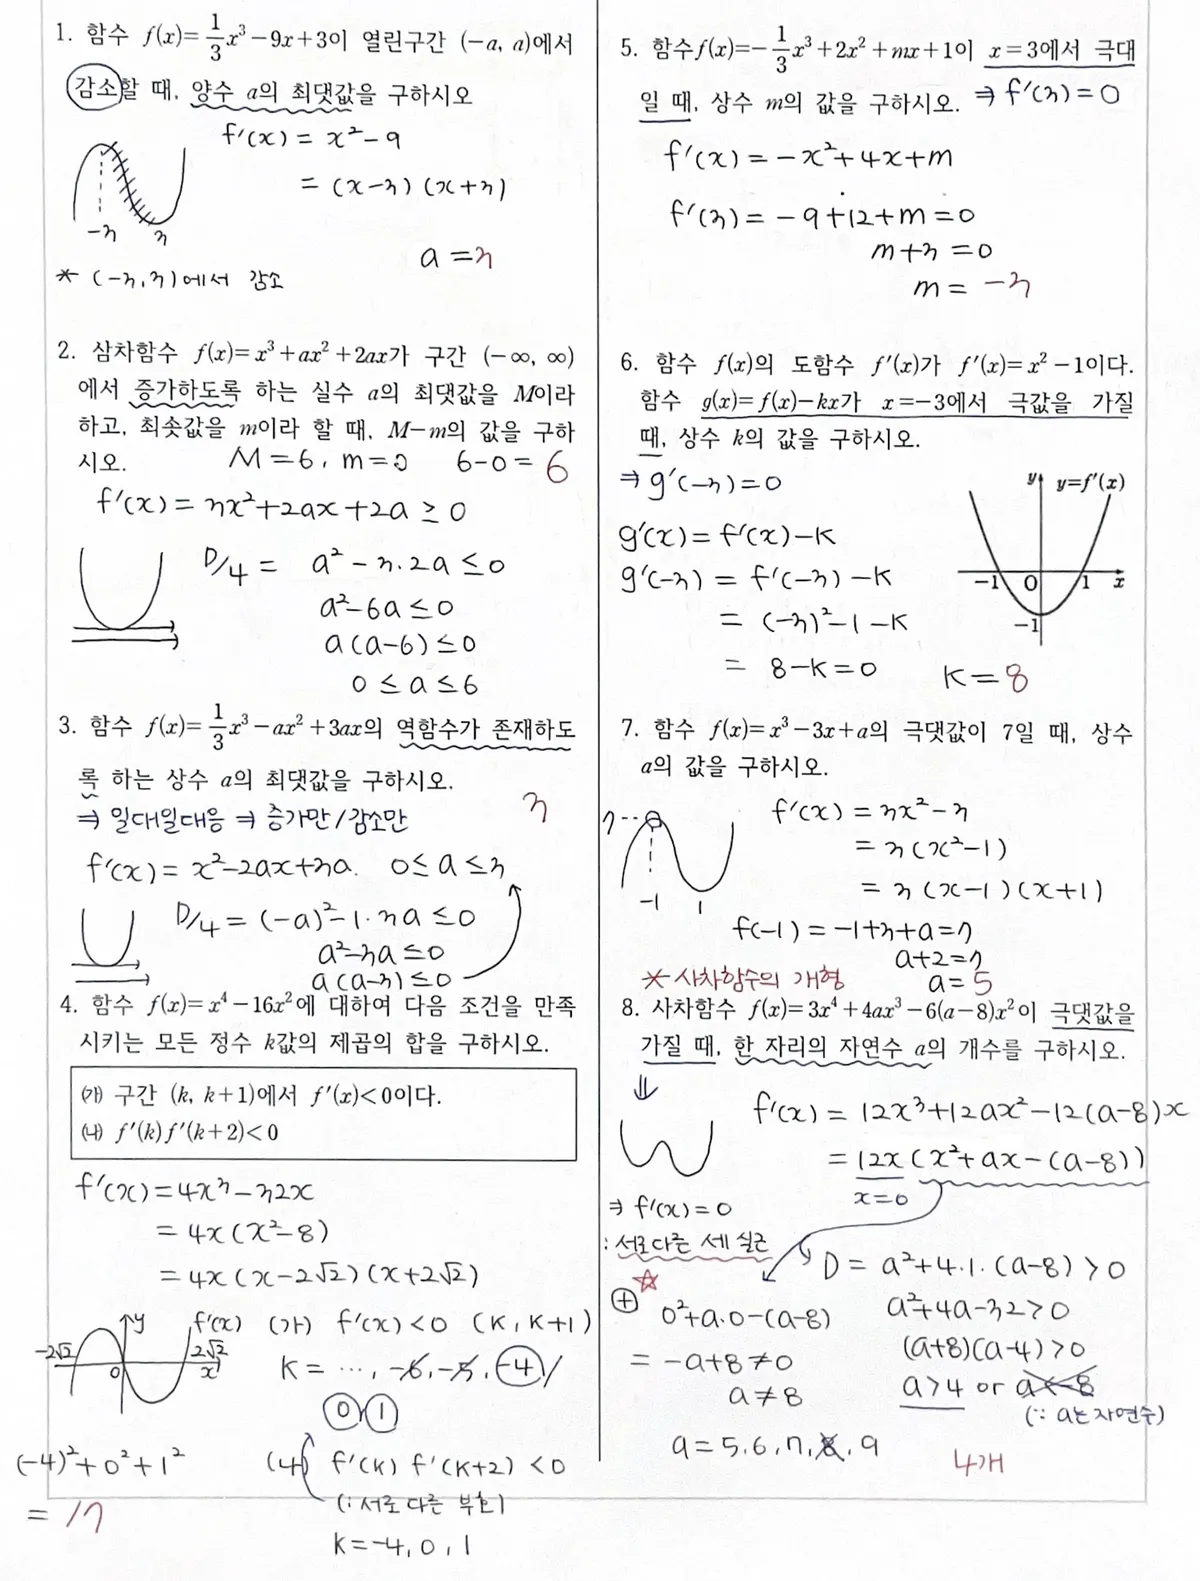 1. 함수 f(x)=1/3x³-9x+3이 열린구간 (-a, a)에서
감소할 때, 양수 a의 최댓값을 구하시오
f'(x) = x²-9
= (x-3)(x+3)
-3 3
a = 3
* (-3, 3)에서 감소
2. 삼차함수 f(x)=x³+ax²+2ax가 구간 (-∞, ∞)
에서 증가하도록 하는 실수 a의 최댓값을 M이라
하고, 최솟값을 m이라 할 때, M-m의 값을 구하
시오. M=6, m=0 6-0=6
f'(x) = 3x²+2ax+2a ≥ 0
D/4 = a²-3·2a ≤0
a²-6a ≤0
a(a-6) ≤0
0 ≤ a ≤ 6
3. 함수 f(x)=1/3x³-ax²+3ax의 역함수가 존재하도
록 하는 상수 a의 최댓값을 구하시오.
3
⇒ 일대일대응 ⇒ 증가만/감소만
f'(x) = x²-2ax+3a. 0≤a≤3
D/4 = (-a)²-1·3a ≤0
a²-3a ≤0
a(a-3) ≤0
4. 함수 f(x)=x⁴-16x²에 대하여 다음 조건을 만족
시키는 모든 정수 k값의 제곱의 합을 구하시오.
㈎ 구간 (k, k+1)에서 f'(x)<0이다.
㈏ f'(k)f'(k+2)<0
f'(x) = 4x³-32x
= 4x(x²-8)
= 4x(x-2√2)(x+2√2)
y f'(x)
-2√2 0 2√2 x
(가) f'(x)<0 (k, k+1)
k = …, -6, -5, -4 /
0, 1
(나) f'(k) f'(k+2) <0
(∵서로 다른 부호)
k=-4, 0, 1
(-4)²+0²+1²
= 17
5. 함수f(x)=-1/3x³+2x²+mx+1이 x=3에서 극대
일 때, 상수 m의 값을 구하시오. ⇒ f'(3)=0
f'(x) = -x²+4x+m
f'(3) = -9+12+m=0
m+3=0
m= -3
6. 함수 f(x)의 도함수 f'(x)가 f'(x)=x²-1이다.
함수 g(x)=f(x)-kx가 x=-3에서 극값을 가질
때, 상수 k의 값을 구하시오.
⇒ g'(-3)=0
g'(x) = f'(x)-k
g'(-3) = f'(-3)-k
= (-3)²-1-k
= 8-k=0 k=8
y y=f'(x)
-1 O 1 x
-1
7. 함수 f(x)=x³-3x+a의 극댓값이 7일 때, 상수
a의 값을 구하시오.
7
-1 1
f'(x) = 3x²-3
= 3(x²-1)
= 3(x-1)(x+1)
f(-1) = -1+3+a=7
a+2=7
a=5
* 사차함수의 개형
8. 사차함수 f(x)=3x⁴+4ax³-6(a-8)x²이 극댓값을
가질 때, 한 자리의 자연수 a의 개수를 구하시오.
⇓
f'(x) = 12x³+12ax²-12(a-8)x
= 12x(x²+ax-(a-8))
x=0
⇒ f'(x)=0
: 서로다른 세 실근
☆
⊕ 0²+a·0-(a-8)
= -a+8≠0
a≠8
D = a²+4·1·(a-8) >0
a²+4a-32>0
(a+8)(a-4)>0
a>4 or a<-8
(∵ a는 자연수)
a=5, 6, 7, 8, 9
4개